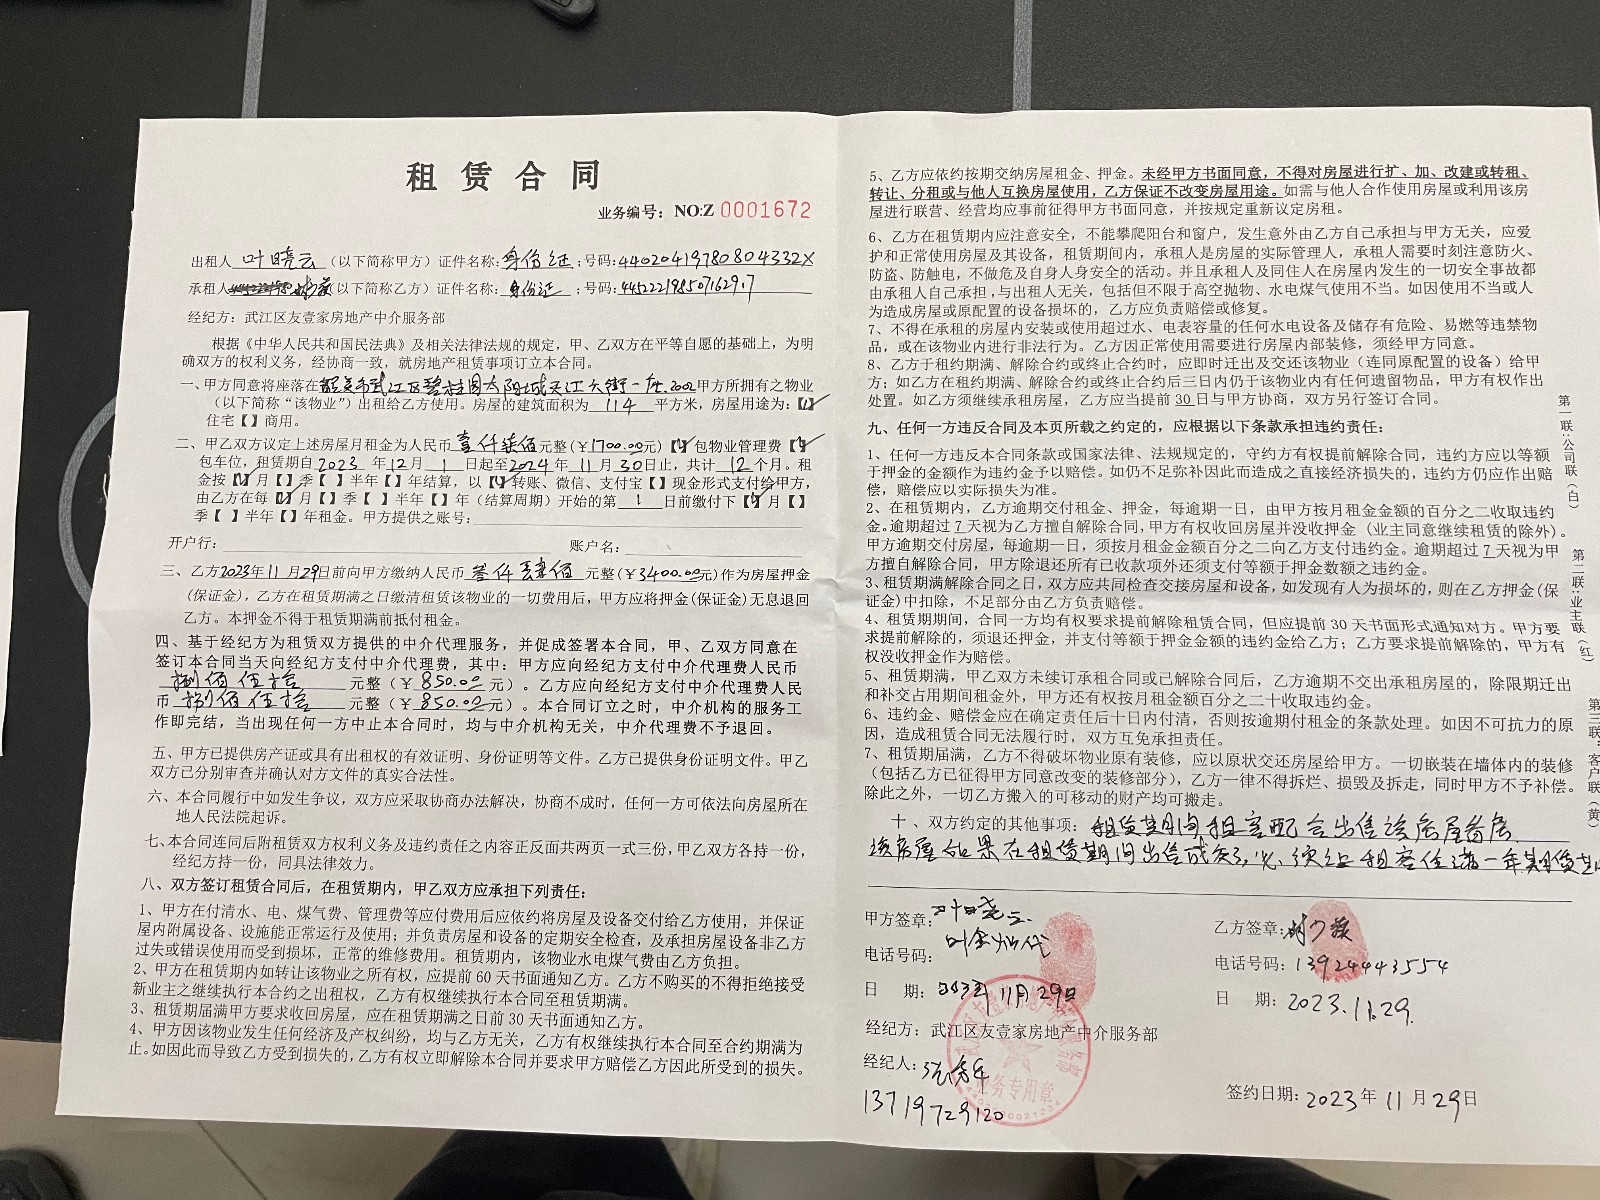 租赁合同
业务编号：NO:Z 0001672
出租人 叶晓云 （以下简称甲方）证件名称：身份证；号码：44020419780804332X
承租人（以下简称乙方）证件名称：身份证；号码：
经纪方：武江区友壹家房地产中介服务部
根据《中华人民共和国民法典》及相关法律法规的规定，甲、乙双方在平等自愿的基础上，为明
确双方的权利义务，经协商一致，就房地产租赁事项订立本合同。
一、甲方同意将座落在韶关市武江区碧桂园太阳城天江大街一座2002甲方所拥有之物业
（以下简称“该物业”）出租给乙方使用。房屋的建筑面积为 114 平方米，房屋用途为：【✓】
住宅【 】商用。
二、甲乙双方议定上述房屋月租金为人民币 壹仟柒佰 元整（￥1700.00元）【✓】包物业管理费【✓】
包车位，租赁期自 2023 年 12 月 1 日起至 2024 年 11 月 30 日止，共计 12 个月。租
金按【✓】月【 】季【 】半年【 】年结算，以【✓】转账、微信、支付宝【 】现金形式支付给甲方，
由乙方在每【✓】月【 】季【 】半年【 】年（结算周期）开始的第 1 日前缴付下【✓】月【 】
季【 】半年【 】年租金。甲方提供之账号：
开户行： 账户名：
三、乙方2023年11月29日前向甲方缴纳人民币 叁仟肆佰 元整（￥3400.00元）作为房屋押金
（保证金），乙方在租赁期满之日缴清租赁该物业的一切费用后，甲方应将押金（保证金）无息退回
乙方。本押金不得于租赁期满前抵付租金。
四、基于经纪方为租赁双方提供的中介代理服务，并促成签署本合同，甲、乙双方同意在
签订本合同当天向经纪方支付中介代理费，其中：甲方应向经纪方支付中介代理费人民币
捌佰伍拾 元整（￥850.00元）。乙方应向经纪方支付中介代理费人民
币 捌佰伍拾 元整（￥850.00元）。本合同订立之时，中介机构的服务工
作即完结，当出现任何一方中止本合同时，均与中介机构无关，中介代理费不予退回。
五、甲方已提供房产证或具有出租权的有效证明、身份证明等文件。乙方已提供身份证明文件。甲乙
双方已分别审查并确认对方文件的真实合法性。
六、本合同履行中如发生争议，双方应采取协商办法解决，协商不成时，任何一方可依法向房屋所在
地人民法院起诉。
七、本合同连同后附租赁双方权利义务及违约责任之内容正反面共两页一式三份，甲乙双方各持一份，
经纪方持一份，同具法律效力。
八、双方签订租赁合同后，在租赁期内，甲乙双方应承担下列责任：
1、甲方在付清水、电、煤气费、管理费等应付费用后应依约将房屋及设备交付给乙方使用，并保证
屋内附属设备、设施能正常运行及使用；并负责房屋和设备的定期安全检查，及承担房屋设备非乙方
过失或错误使用而受到损坏，正常的维修费用。租赁期内，该物业水电煤气费由乙方负担。
2、甲方在租赁期内如转让该物业之所有权，应提前 60 天书面通知乙方。乙方不购买的不得拒绝接受
新业主之继续执行本合约之出租权，乙方有权继续执行本合同至租赁期满。
3、租赁期届满甲方要求收回房屋，应在租赁期满之日前 30 天书面通知乙方。
4、甲方因该物业发生任何经济及产权纠纷，均与乙方无关，乙方有权继续执行本合同至合约期满为
止。如因此而导致乙方受到损失的，乙方有权立即解除本合同并要求甲方赔偿乙方因此所受到的损失。
5、乙方应依约按期交纳房屋租金、押金。未经甲方书面同意，不得对房屋进行扩、加、改建或转租、
转让、分租或与他人互换房屋使用，乙方保证不改变房屋用途。如需与他人合作使用房屋或利用该房
屋进行联营、经营均应事前征得甲方书面同意，并按规定重新议定房租。
6、乙方在租赁期内应注意安全，不能攀爬阳台和窗户，发生意外由乙方自己承担与甲方无关，应爱
护和正常使用房屋及其设备，租赁期间内，承租人是房屋的实际管理人，承租人需要时刻注意防火、
防盗、防触电，不做危及自身人身安全的活动。并且承租人及同住人在房屋内发生的一切安全事故都
由承租人自己承担，与出租人无关，包括但不限于高空抛物、水电煤气使用不当。如因使用不当或人
为造成房屋或原配置的设备损坏的，乙方应负责赔偿或修复。
7、不得在承租的房屋内安装或使用超过水、电表容量的任何水电设备及储存有危险、易燃等违禁物
品，或在该物业内进行非法行为。乙方因正常使用需要进行房屋内部装修，须经甲方同意。
8、乙方于租约期满、解除合约或终止合约时，应即时迁出及交还该物业（连同原配置的设备）给甲
方；如乙方在租约期满、解除合约或终止合约后三日内仍于该物业内有任何遗留物品，甲方有权作出
处置。如乙方须继续承租房屋，乙方应当提前 30 日与甲方协商，双方另行签订合同。
九、任何一方违反合同及本页所载之约定的，应根据以下条款承担违约责任：
1、任何一方违反本合同条款或国家法律、法规规定的，守约方有权提前解除合同，违约方应以等额
于押金的金额作为违约金予以赔偿。如仍不足弥补因此而造成之直接经济损失的，违约方仍应作出赔
偿，赔偿应以实际损失为准。
2、在租赁期内，乙方逾期交付租金、押金，每逾期一日，由甲方按月租金金额的百分之二收取违约
金。逾期超过 7 天视为乙方擅自解除合同，甲方有权收回房屋并没收押金（业主同意继续租赁的除外）。
甲方逾期交付房屋，每逾期一日，须按月租金金额百分之二向乙方支付违约金。逾期超过 7 天视为甲
方擅自解除合同，甲方除退还所有已收款项外还须支付等额于押金数额之违约金。
3、租赁期满解除合同之日，双方应共同检查交接房屋和设备，如发现有人为损坏的，则在乙方押金(保
证金)中扣除，不足部分由乙方负责赔偿。
4、租赁期期间，合同一方均有权要求提前解除租赁合同，但应提前 30 天书面形式通知对方。甲方要
求提前解除的，须退还押金，并支付等额于押金金额的违约金给乙方；乙方要求提前解除的，甲方有
权没收押金作为赔偿。
5、租赁期满，甲乙双方未续订承租合同或已解除合同后，乙方逾期不交出承租房屋的，除限期迁出
和补交占用期间租金外，甲方还有权按月租金额百分之二十收取违约金。
6、违约金、赔偿金应在确定责任后十日内付清，否则按逾期付租金的条款处理。如因不可抗力的原
因，造成租赁合同无法履行时，双方互免承担责任。
7、租赁期届满，乙方不得破坏物业原有装修，应以原状交还房屋给甲方。一切嵌装在墙体内的装修
（包括乙方已征得甲方同意改变的装修部分），乙方一律不得拆烂、损毁及拆走，同时甲方不予补偿。
除此之外，一切乙方搬入的可移动的财产均可搬走。
十、双方约定的其他事项：租赁期间租客配合出售该房屋看房
该房屋如果在租赁期间出售成交了，必须让租客住满一年期
甲方签章：叶晓云
电话号码：
日 期：2023年11月29日
经纪方：武江区友壹家房地产中介服务部
经纪人：
13719729120
乙方签章：
电话号码：13924443554
日 期：2023.11.29.
签约日期：2023年11月29日
业务专用章
第一联：公司联（白）
第二联：业主联（红）
第三联：客户联（黄）